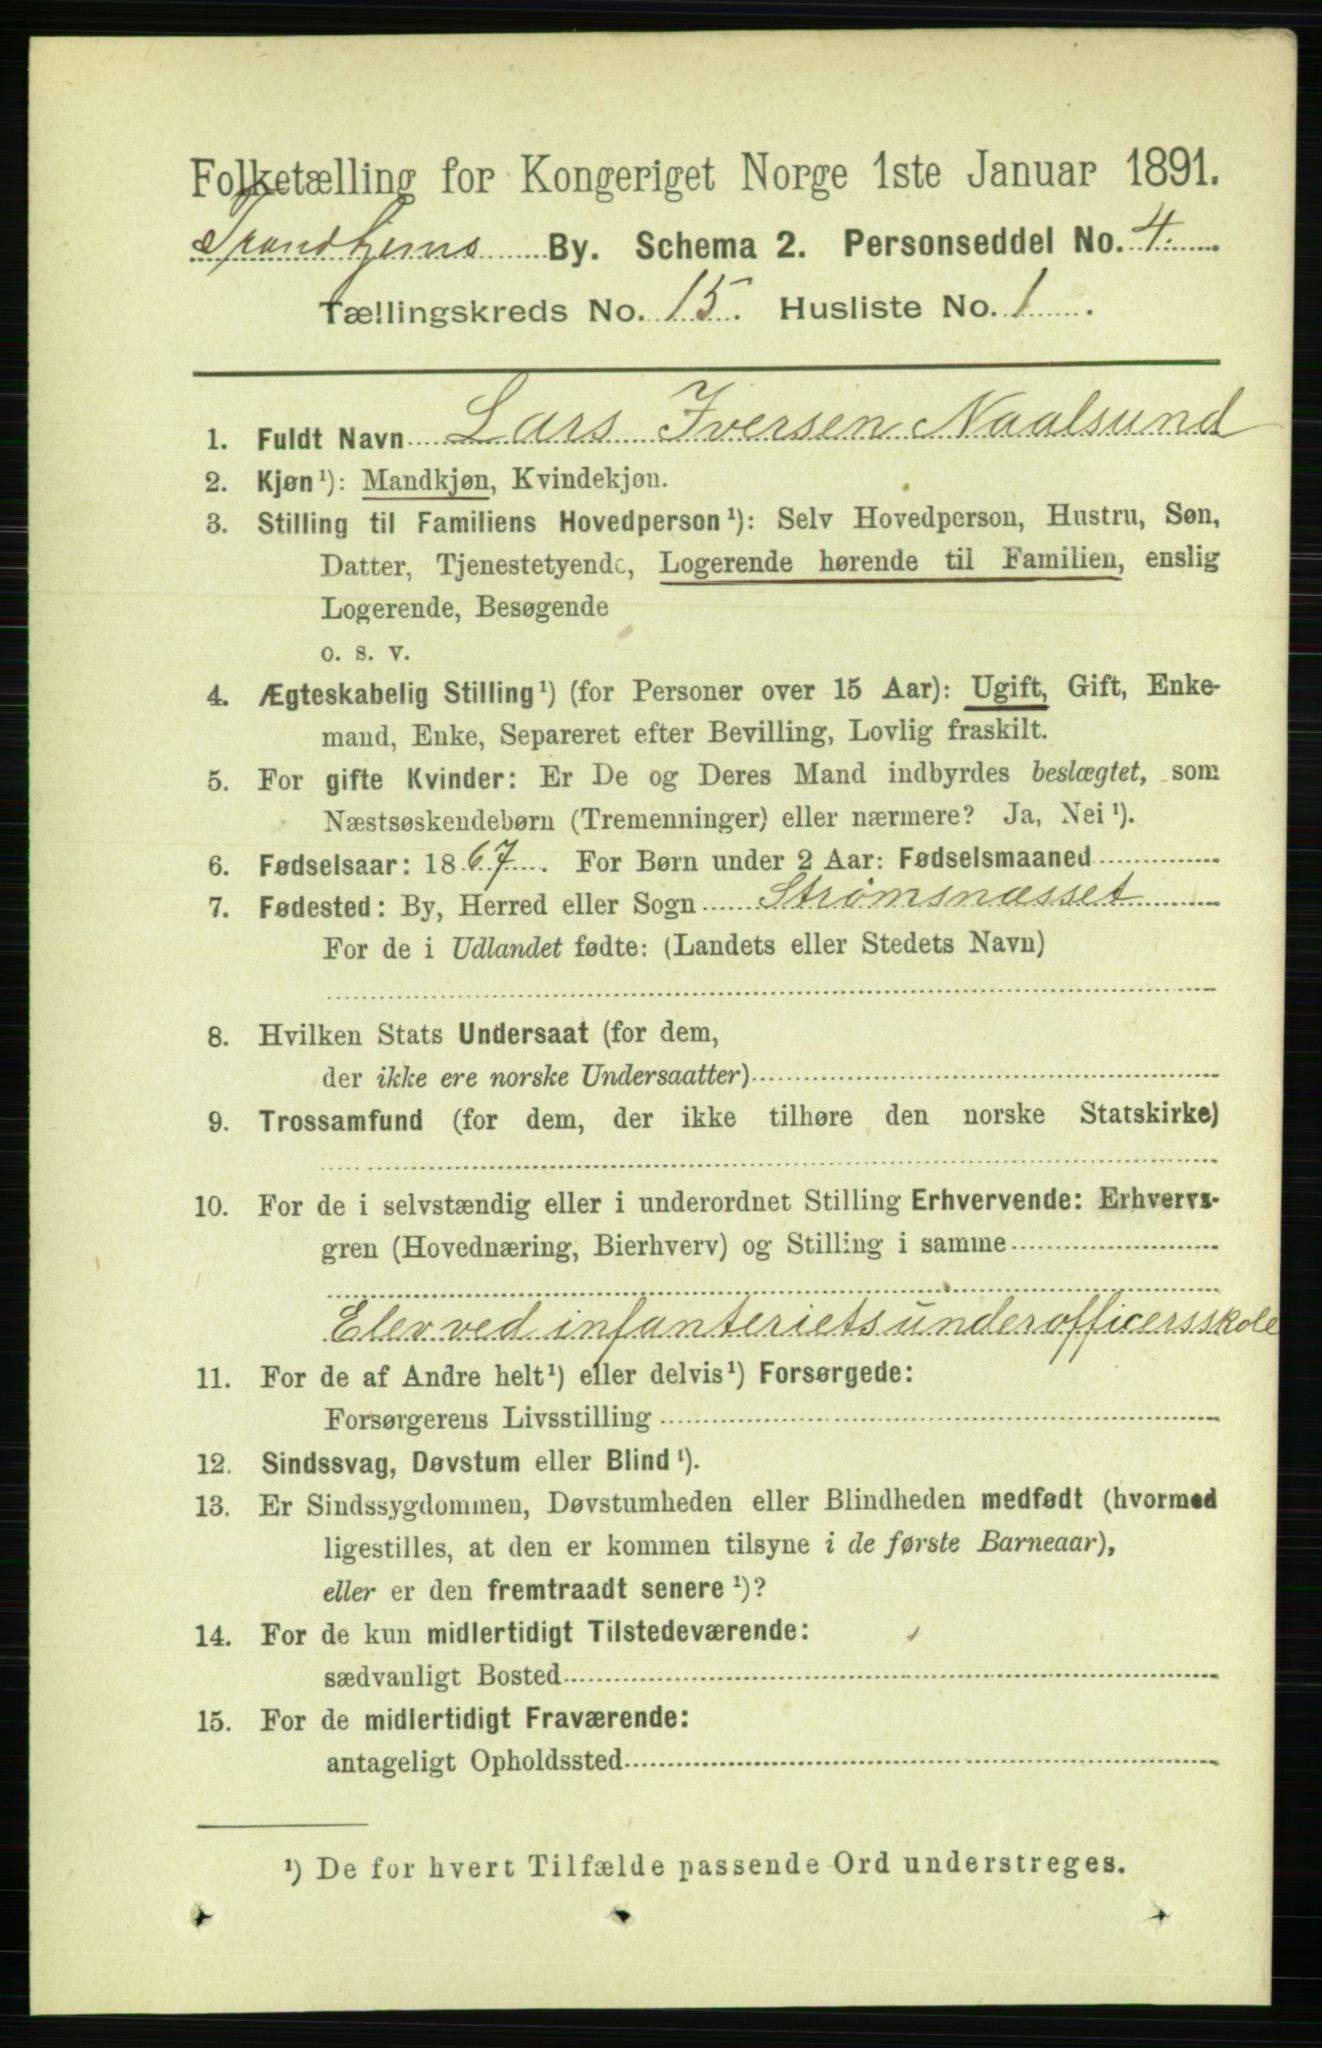 Folketælling for Kongeriget Norge 1ste Januar 1891.
Trondhjems By. Schema 2. Personseddel No. 4.
Tællingskreds No. 15. Husliste No. 1.
1. Fuldt Navn Lars Iversen Naalsund
2. Kjøn¹): Mandkjøn, Kvindekjøn.
3. Stilling til Familiens Hovedperson¹): Selv Hovedperson, Hustru, Søn,
Datter, Tjenestetyende, Logerende hørende til Familien, enslig
Logerende, Besøgende
o. s. v.
4. Ægteskabelig Stilling¹) (for Personer over 15 Aar): Ugift, Gift, Enke-
mand, Enke, Separeret efter Bevilling, Lovlig fraskilt.
5. For gifte Kvinder: Er De og Deres Mand indbyrdes beslægtet, som
Næstsøskendebørn (Tremenninger) eller nærmere? Ja, Nei¹).
6. Fødselsaar: 1867. For Børn under 2 Aar: Fødselsmaaned
7. Fødested: By, Herred eller Sogn Strømsnæsset
For de i Udlandet fødte: (Landets eller Stedets Navn)
8. Hvilken Stats Undersaat (for dem,
der ikke ere norske Undersaatter)
9. Trossamfund (for dem, der ikke tilhøre den norske Statskirke)
10. For de i selvstændig eller i underordnet Stilling Erhvervende: Erhvervs-
gren (Hovednæring, Bierhverv) og Stilling i samme
Elev ved infanteriets underofficersskole
11. For de af Andre helt¹) eller delvis¹) Forsørgede:
Forsørgerens Livsstilling
12. Sindssvag, Døvstum eller Blind¹).
13. Er Sindssygdommen, Døvstumheden eller Blindheden medfødt (hvormed
ligestilles, at den er kommen tilsyne i de første Barneaar),
eller er den fremtraadt senere¹)?
14. For de kun midlertidigt Tilstedeværende:
sædvanligt Bosted
15. For de midlertidigt Fraværende:
antageligt Opholdssted
¹) De for hvert Tilfælde passende Ord understreges.